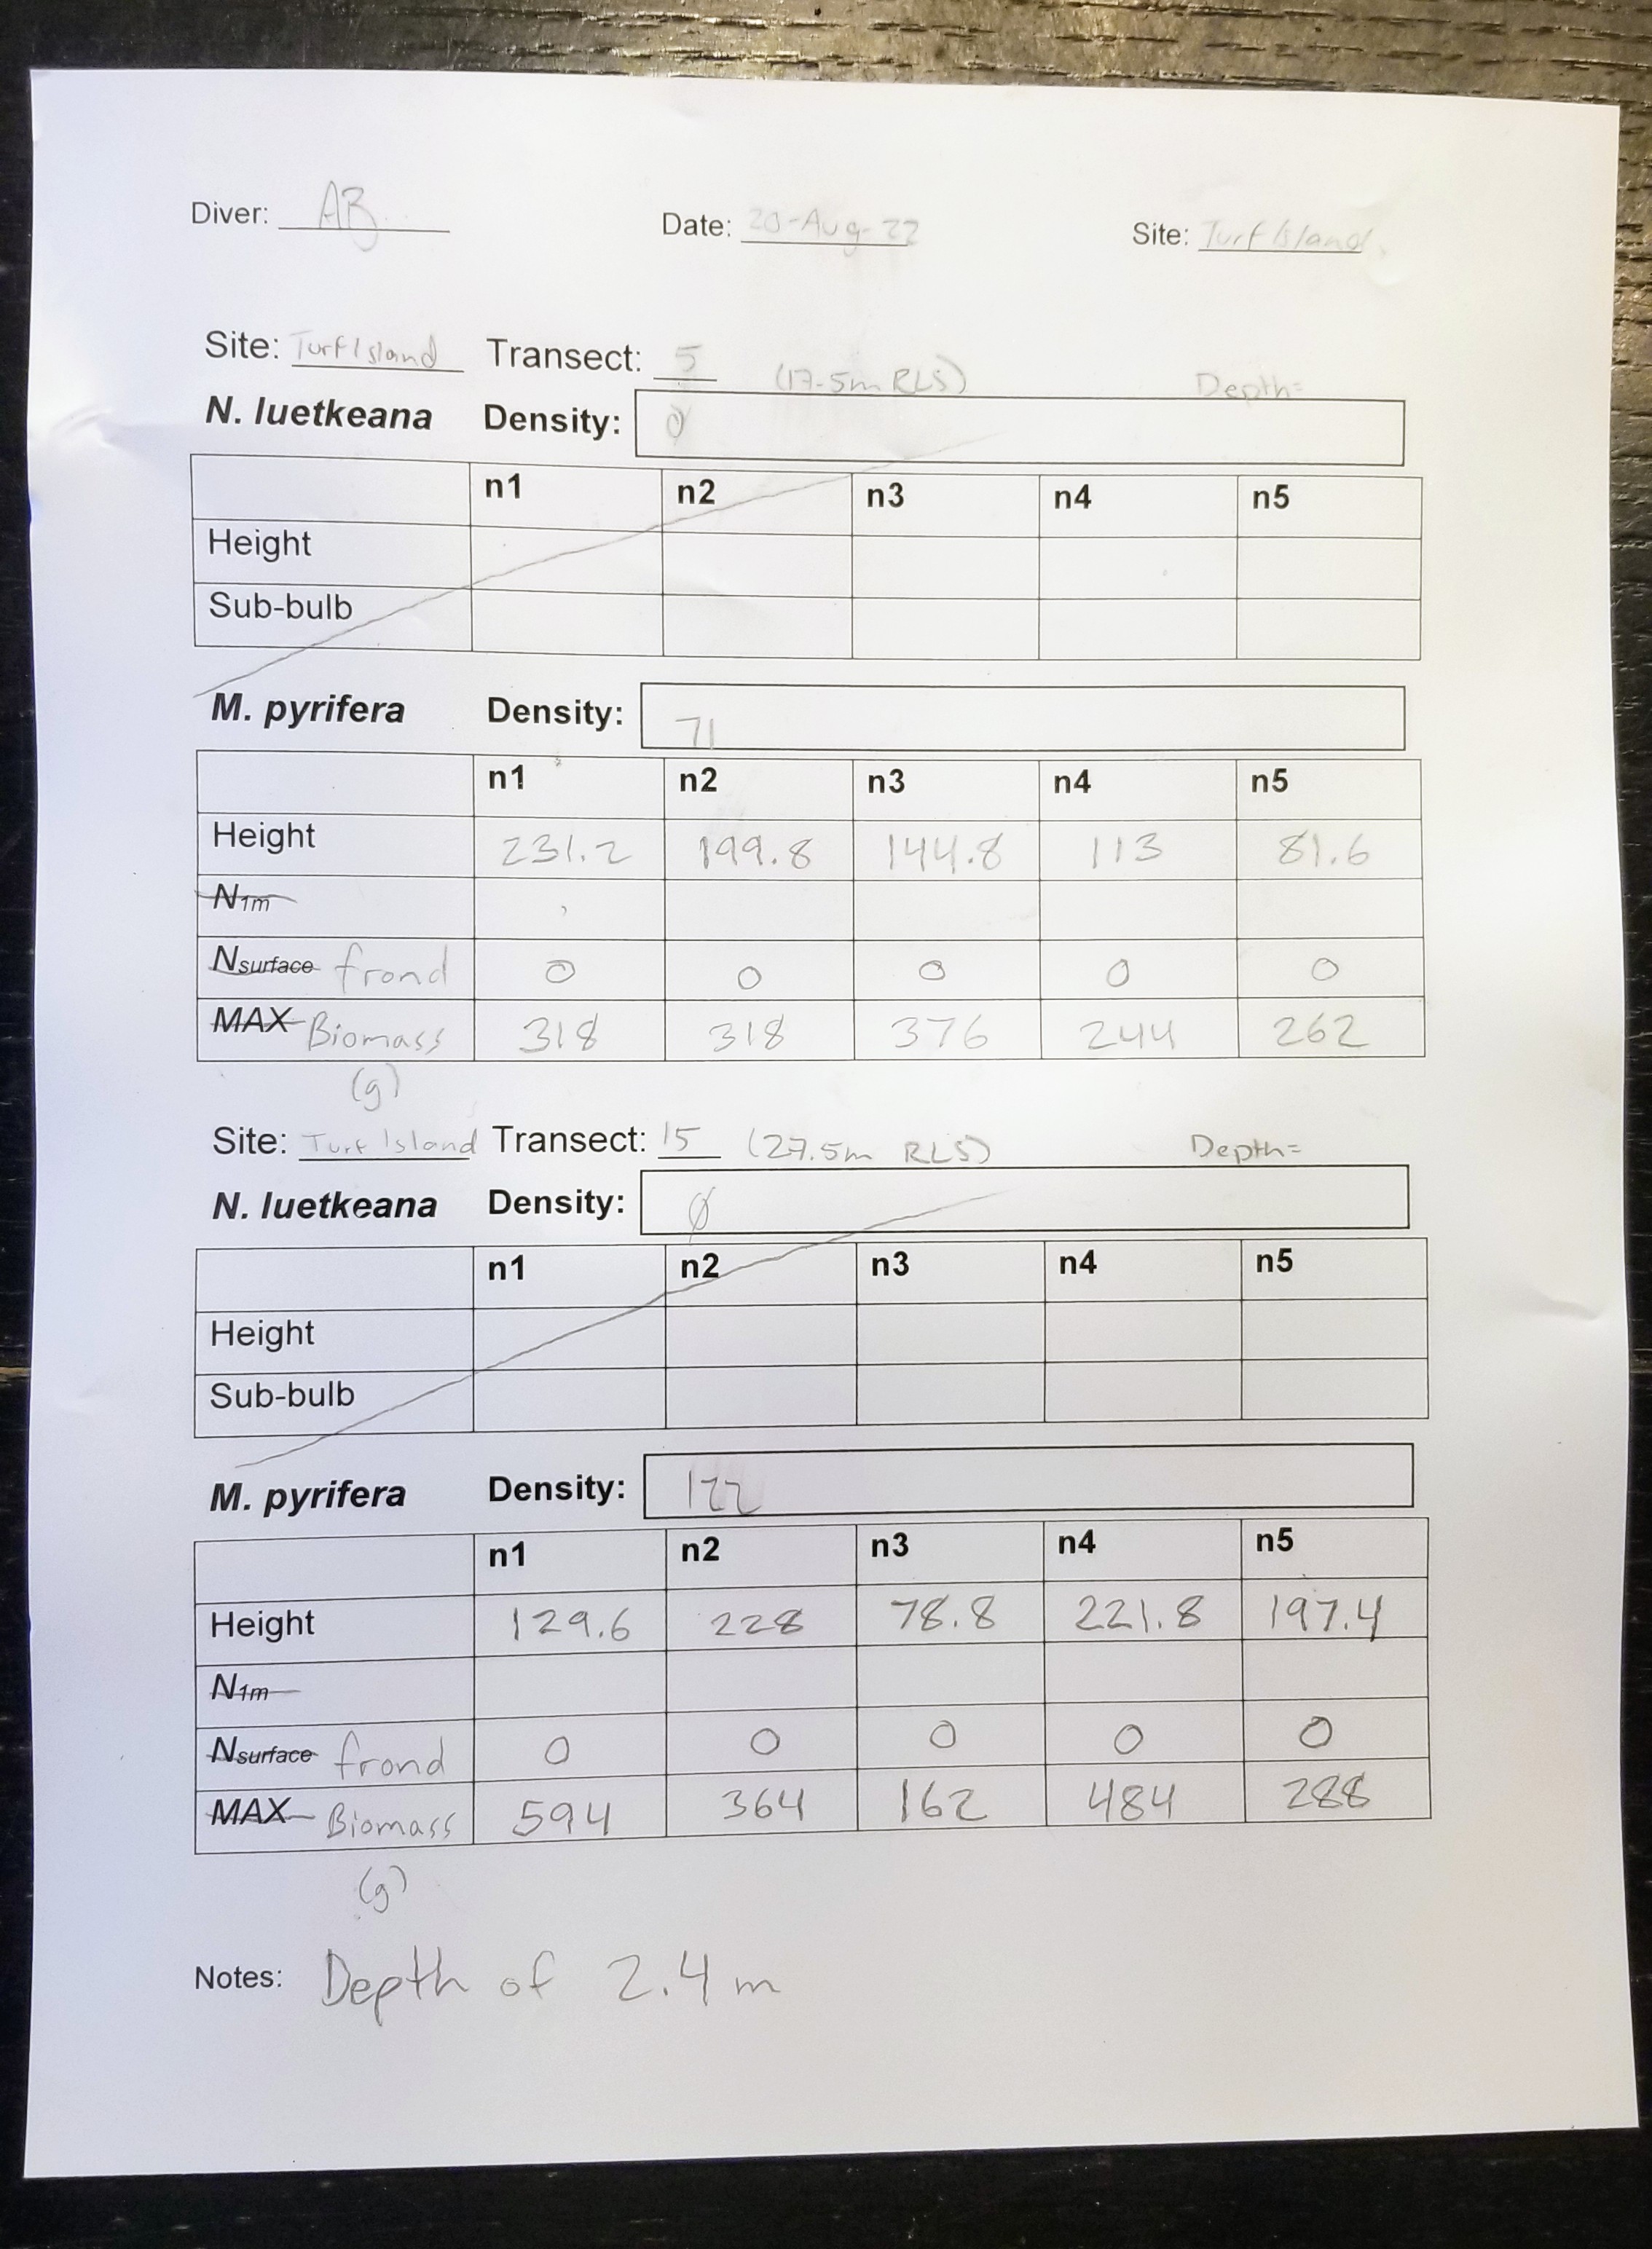 Diver: AB Date: 20-Aug-22 Site: Turf Island
Site: Turf Island Transect: 5 (17.5m RLS) Depth=
N. luetkeana Density: 0
n1 n2 n3 n4 n5
Height
Sub-bulb
M. pyrifera Density: 71
n1 n2 n3 n4 n5
Height 231.2 199.8 144.8 113 81.6
N1m
Nsurface frond 0 0 0 0 0
MAX Biomass 318 318 376 244 262
(g)
Site: Turf Island Transect: 15 (27.5m RLS) Depth=
N. luetkeana Density: Ø
n1 n2 n3 n4 n5
Height
Sub-bulb
M. pyrifera Density: 122
n1 n2 n3 n4 n5
Height 129.6 228 78.8 221.8 197.4
N1m
Nsurface frond 0 0 0 0 0
MAX Biomass 594 364 162 484 288
(g)
Notes: Depth of 2.4 m